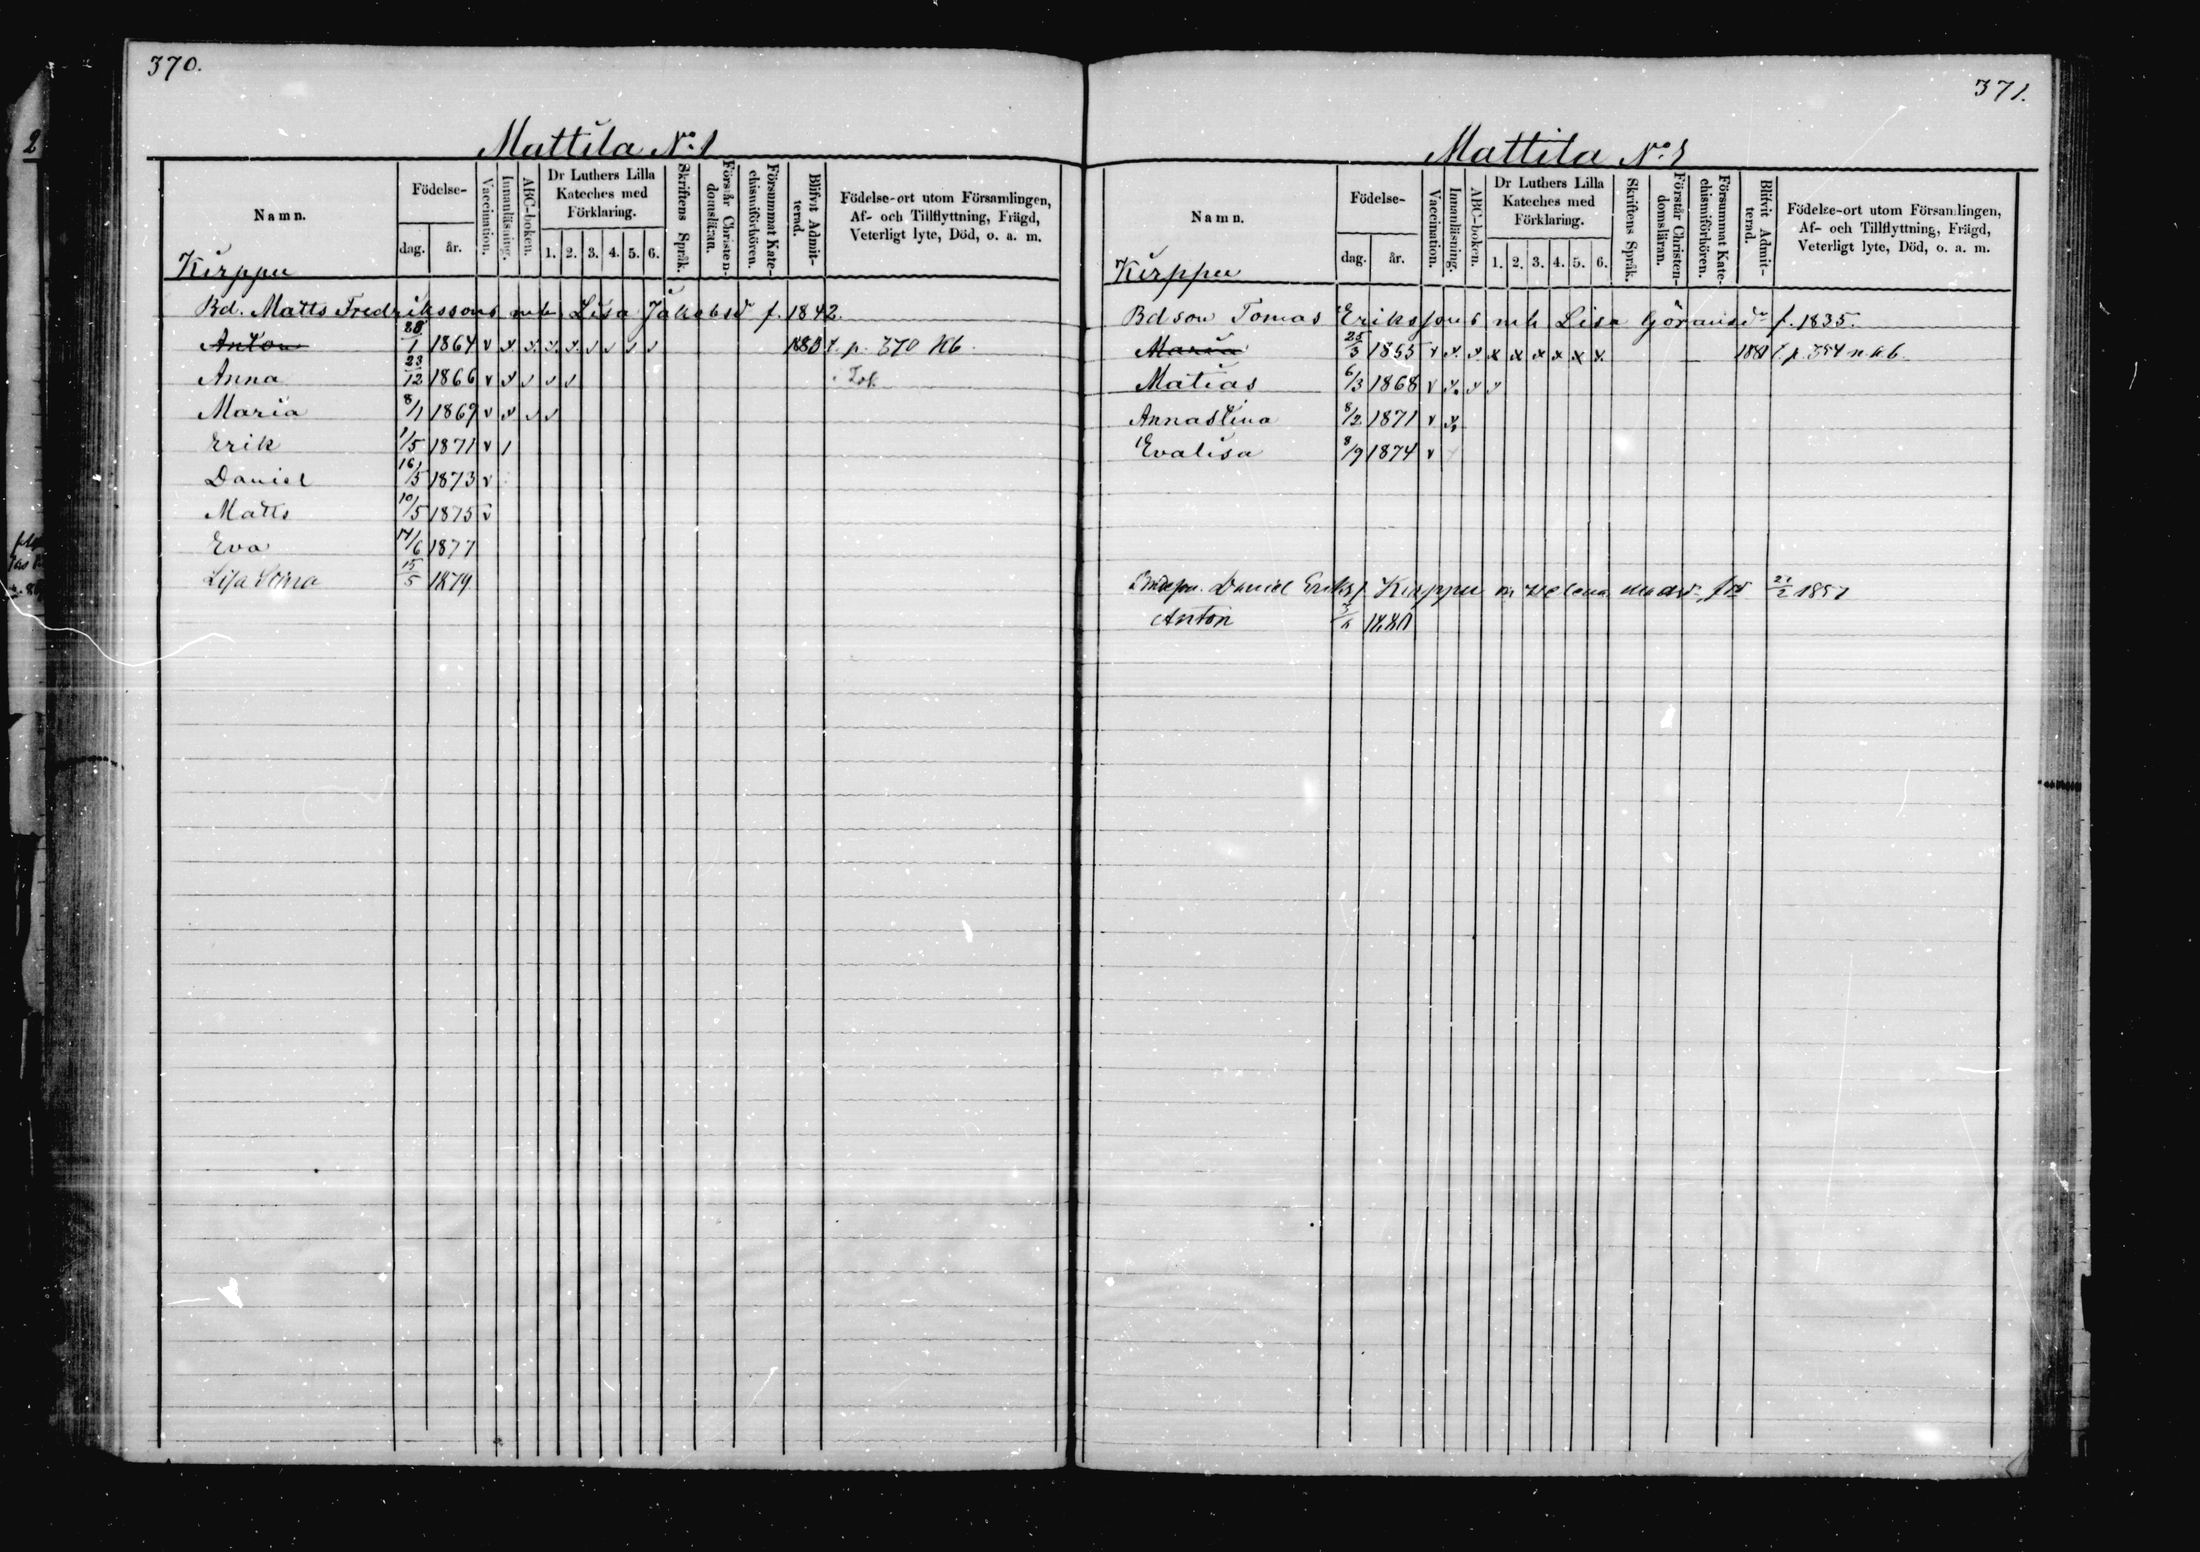 370.
Mattila No: 1
Namn.
Födelse-
dag. år.
Vaccination.
Innanläsning.
ABC-boken.
Dr Luthers Lilla Kateches med Förklaring.
1. 2. 3. 4. 5. 6.
Skriftens Språk.
Förstår Christendomsläran.
Försummat Katechismiförhören.
Blifvit Admitterad.
Födelse-ort utom Församlingen,
Af- och Tillflyttning, Frägd,
Veterligt lyte, Död, o. a. m.
Kirppu
Bd. Matts Fredrikssons m h Lisa Jakobsd f. 1842.
Anton 1864 v 1880 p. 370 Kb
Anna 23/12 1866 v
Maria 8/1 1869 v
Erik 1/5 1871 v
Daniel 16/5 1873 v
Matts 10/5 1875 v
Eva 14/6 1877
Lisa 15/5 1879
371.
Mattila No: 1
Namn.
Födelse-
dag. år.
Vaccination.
Innanläsning.
ABC-boken.
Dr Luthers Lilla Kateches med Förklaring.
1. 2. 3. 4. 5. 6.
Skriftens Språk.
Förstår Christendomsläran.
Försummat Katechismiförhören.
Blifvit Admitterad.
Födelse-ort utom Församlingen,
Af- och Tillflyttning, Frägd,
Veterligt lyte, Död, o. a. m.
Kirppu
Bdson Tomas Erikssons m h Lisa Göransdr f. 1835.
Maria 25/3 1865 v x x x x x x p. 354 n k b.
Matias 6/3 1868 v
Annastina 8/2 1871 v
Evalisa 8/9 1874 v
Daniel Eriks. Kirppu m Helena 21/2 1857
Anton 1880